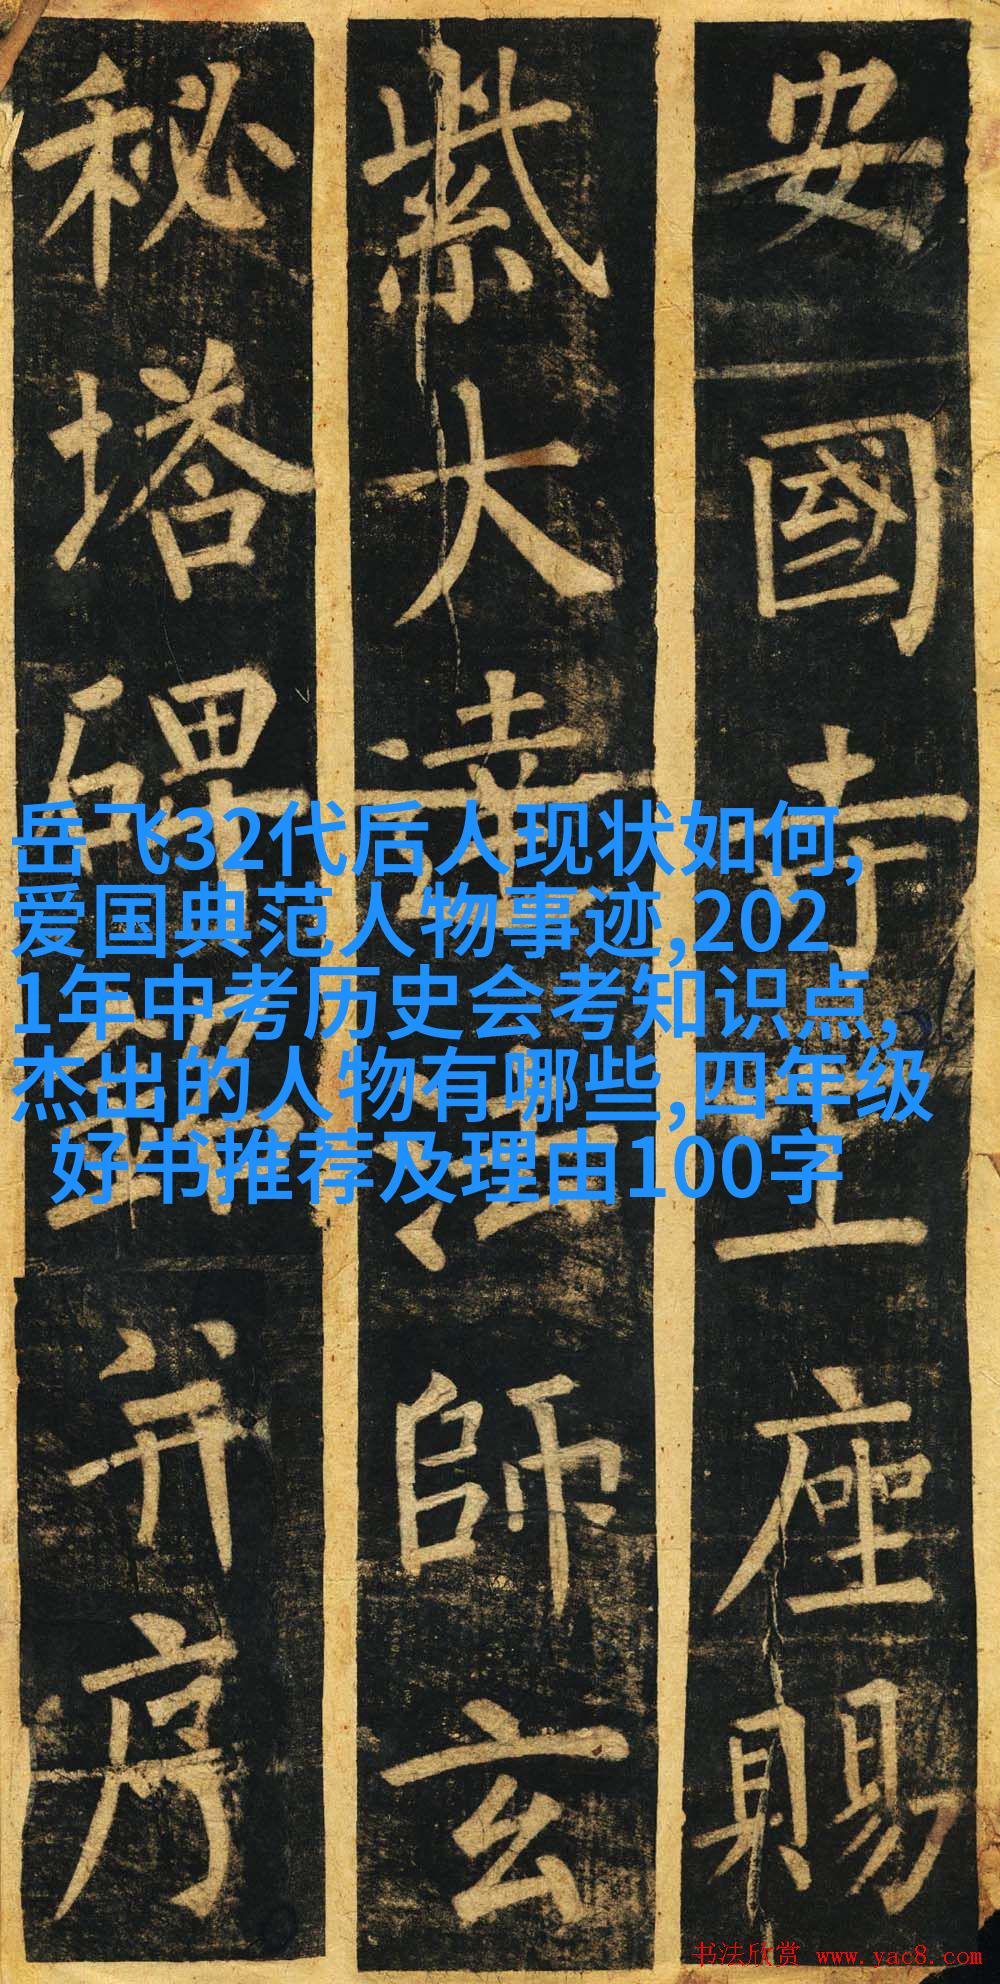 安國寺上座賜
紫大達法師玄
秘塔碑銘并序
岳飞32代后人现状如何,
爱国典范人物事迹,202
1年中考历史会考知识点,
杰出的人物有哪些,四年级
好书推荐及理由100字
书法欣赏 www.yac8.com